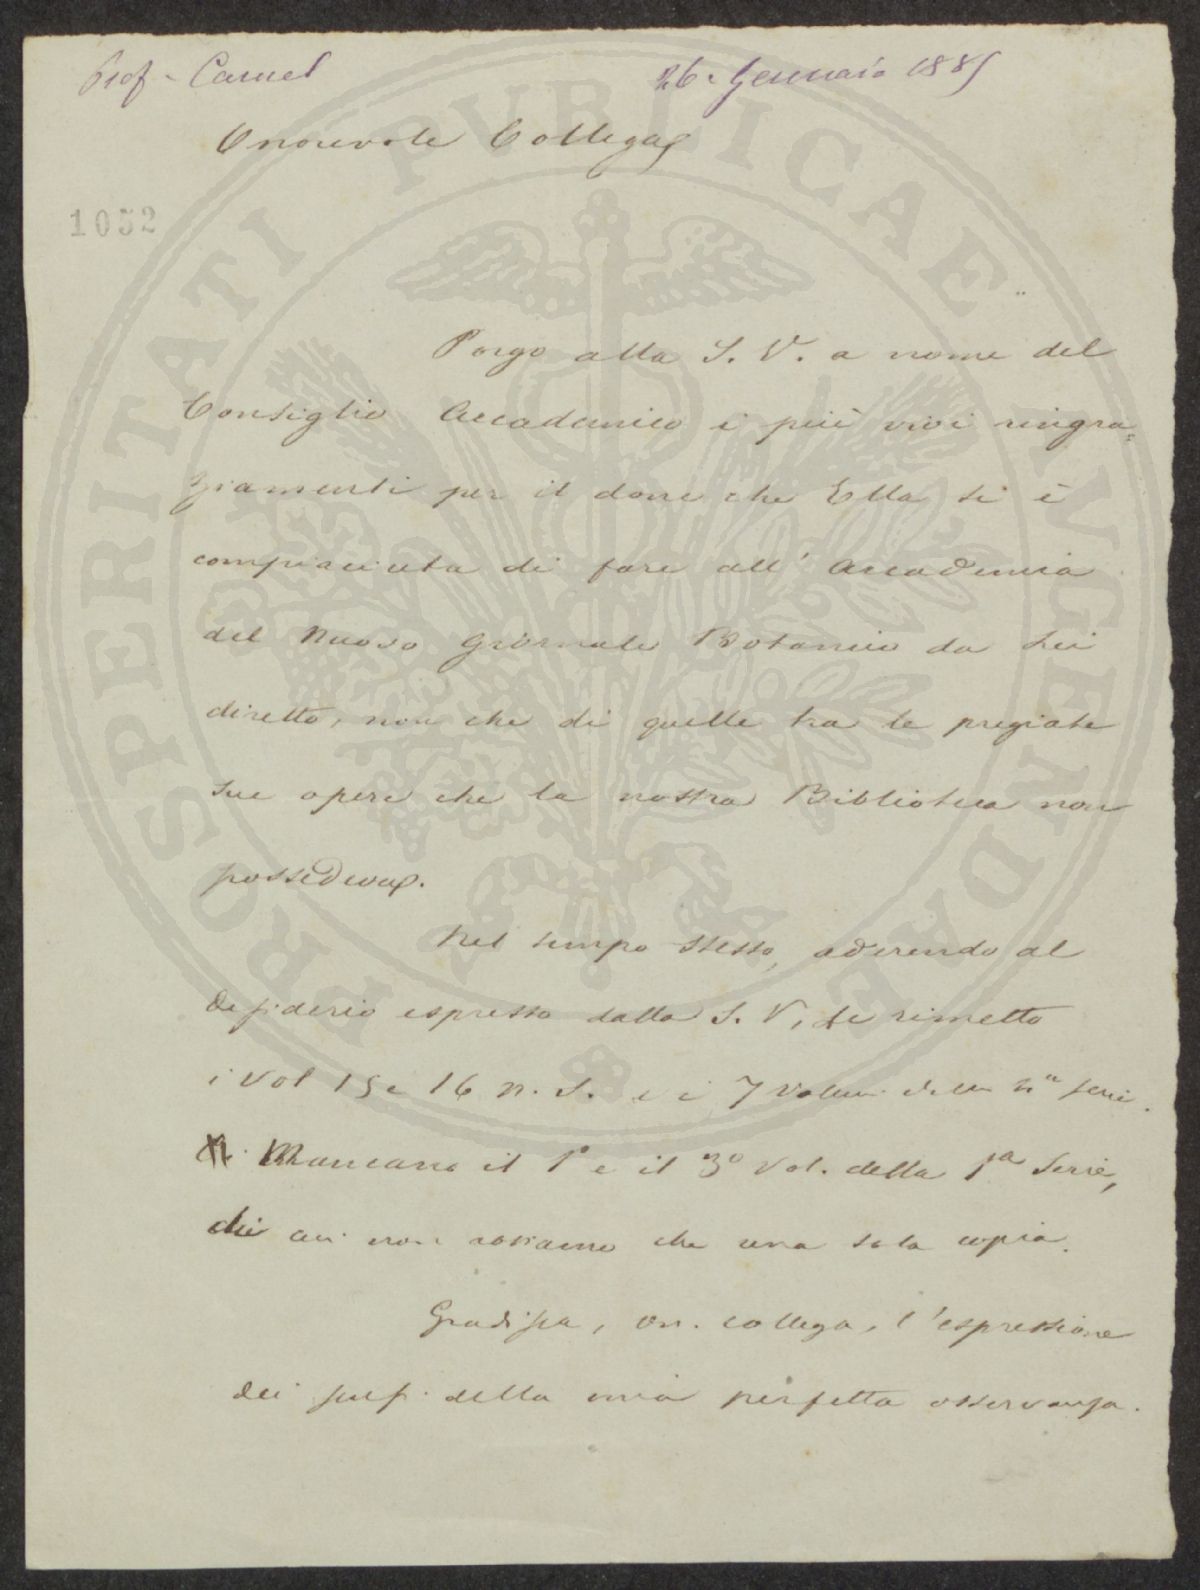 Prof. Caruel
26. Gennaio 1885
Onorevole Collega
1052
Porgo alla S. V. a nome del
Consiglio Accademico i più vivi ringra=
ziamenti per il dono che Ella si è
compiaciuta di fare all' Accademia
del Nuovo Giornale Botanico da Lei
diretto, non che di quelle tra le pregiate
sue opere che la nostra Biblioteca non
possedeva.
Nel tempo stesso, aderendo al
desiderio espresso dalla S. V, Le rimetto
i Vol 15 e 16 N. S. e i 7 volumi della serie.
Mancano il 1° e il 3° Vol. della 1ª Serie,
di cui non abbiamo che una sola copia.
Gradisca, On. collega, l'espressione
dei della mia perfetta osservanza.
PROSPERITATI PVBLICAE AVGENDAE